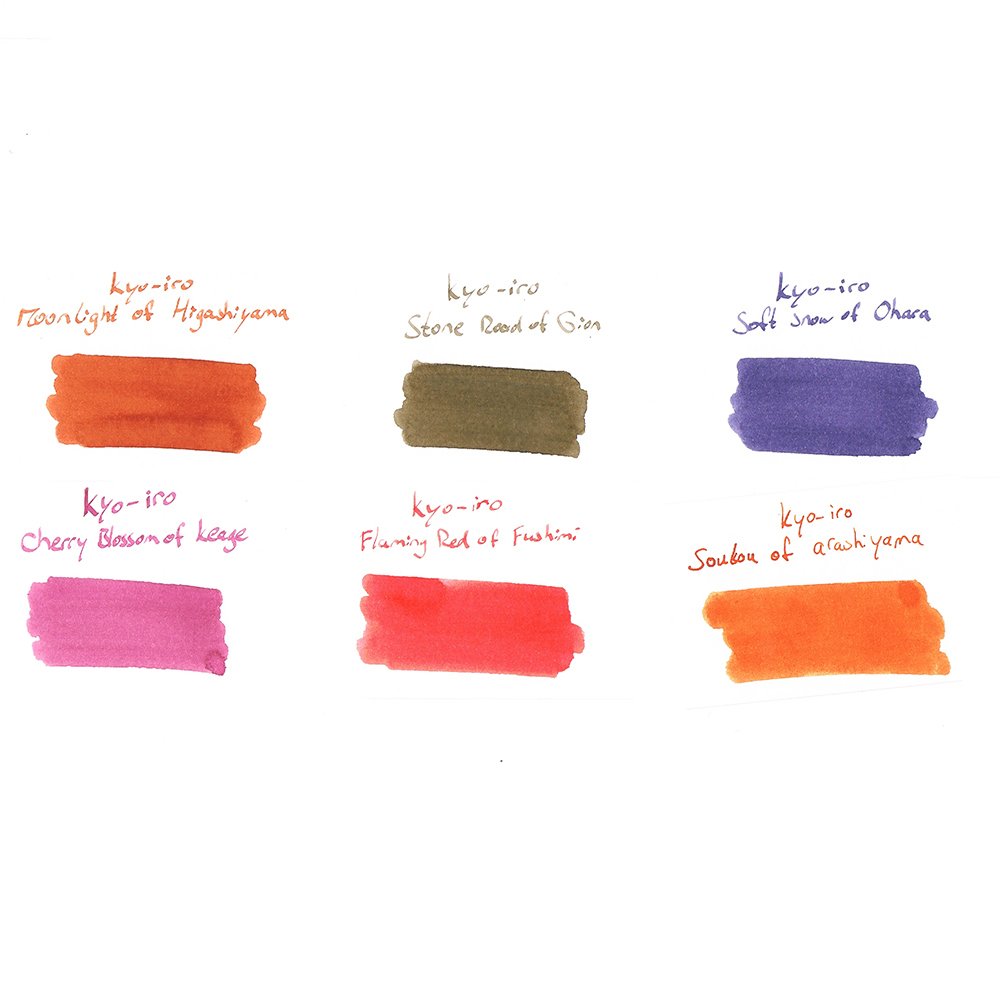 kyo-iro
Moonlight of Higashiyama
kyo-iro
Stone Road of Gion
kyo-iro
Soft snow of Ohara
kyo-iro
Cherry Blossom of keage
kyo-iro
Flaming Red of Fushimi
kyo-iro
Soukou of arashiyama